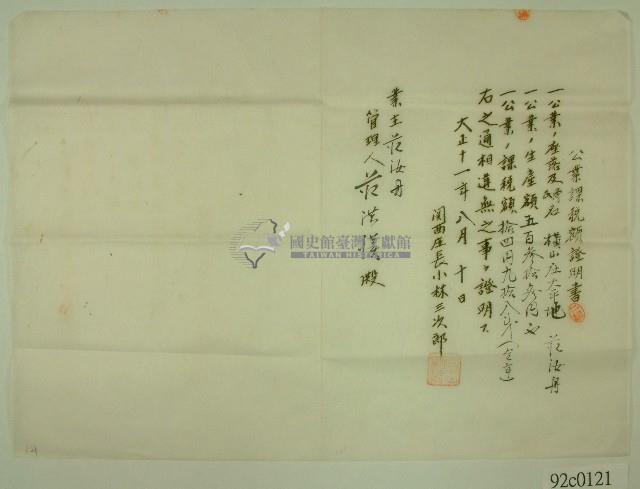 公業課税額證明書
一公業ノ座落及氏名 橫山庄大平地 范汝舟
一公業ノ生產額五百參拾參円也
一公業ノ課税額拾四円九拾八戔
右之通相違無之事ヲ證明ス
大正十一年八月十日
関西庄長小林三次郎
業主范汝舟
管理人范洪 殿
國史館臺灣文獻館
TAIWAN HISTORICA
92c0121